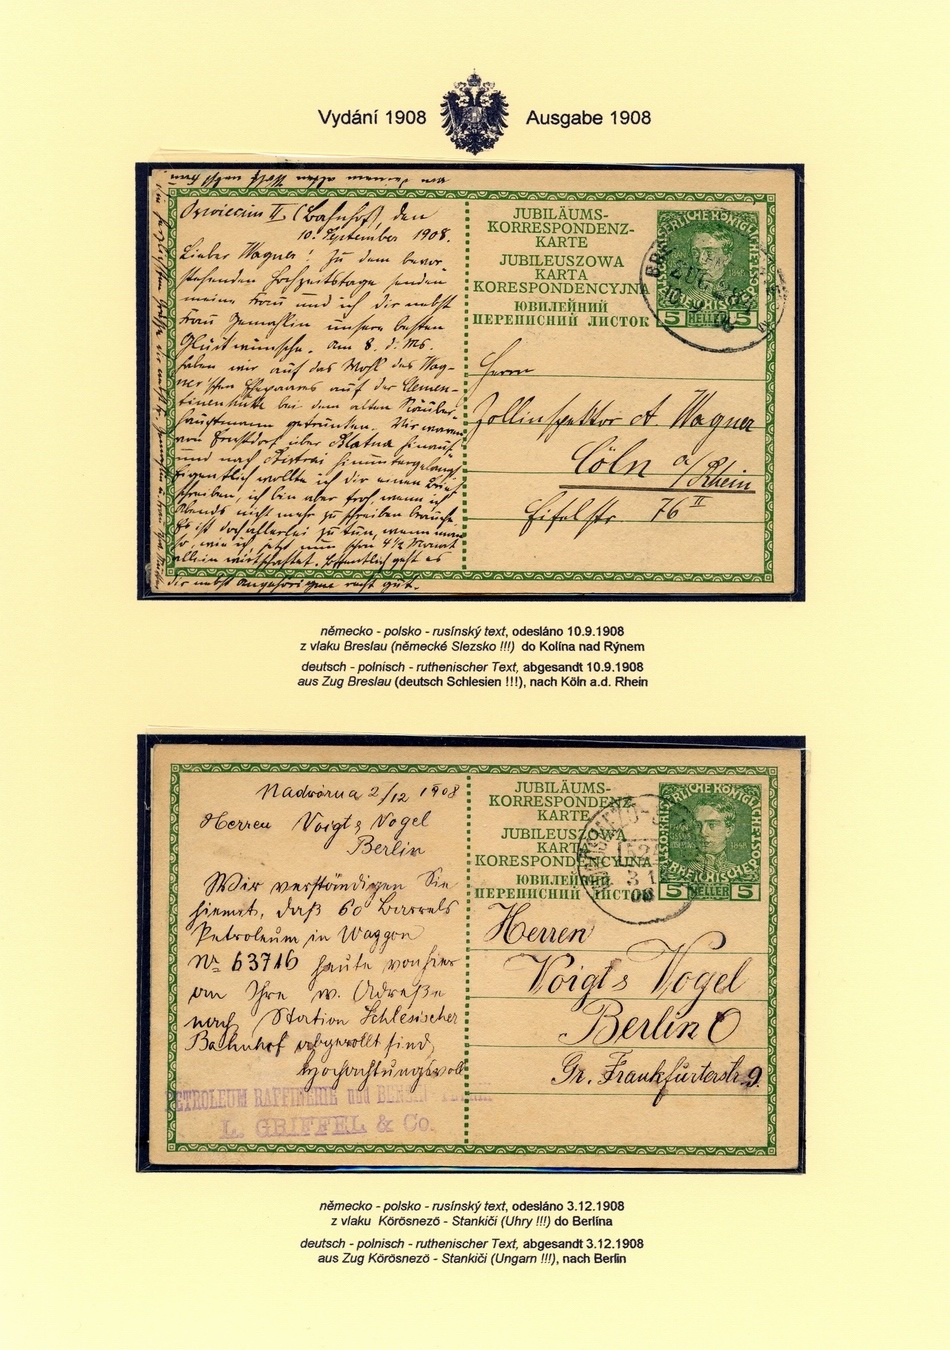 Vydání 1908 Ausgabe 1908
Oswiecim II (Bahnhof), den
10. September 1908.
Lieber Wagner! Zu dem bevor-
stehenden Hochzeitstage senden
meine Frau und ich dir nebst
Frau Gemahlin unsere besten
Glückwünsche. Am 8. d. Ms.
haben wir auf das Wohl des Wag-
ner'schen Ehepaares auf der Clemen-
tinenhütte bei dem alten Räuber-
hauptmann getrunken. Wir waren
von Ernsdorf über Blatna hinauf
und nach Bistrai hinuntergelangt
Eigentlich wollte ich dir einen Brief
schreiben, ich bin aber froh, wenn ich
Abends nicht mehr zu schreiben brauche.
Es ist doch allerlei zu tun, wenn man
so, wie ich jetzt nun schon 4½ Monat
allein wirtschaftet. Hoffentlich geht es
dir nebst Angehörigen recht gut.
JUBILÄUMS-
KORRESPONDENZ-
KARTE
JUBILEUSZOWA
KARTA
KORESPONDENCYJNA
ЮВИЛЕЙНИЙ
ПЕРЕПИСНИЙ ЛИСТОК
5 HELLER 5
Herrn
Zollinspektor A Wagner
Cöln a/Rhein
Eifelstr. 76 II
německo - polsko - rusínský text, odesláno 10.9.1908
z vlaku Breslau (německé Slezsko !!!) do Kolína nad Rýnem
deutsch - polnisch - ruthenischer Text, abgesandt 10.9.1908
aus Zug Breslau (deutsch Schlesien !!!), nach Köln a.d. Rhein
Nadwórna 2/12 1908
Herren Voigt & Vogel
Berlin
Wir verständigen Sie
hiemit, daß 60 Barrels
Petroleum in Waggon
No 63716 heute von hier
an Ihre w. Adreße
nach Station Schlesischer
Bahnhof abgerollt sind
Hochachtungsvoll
PETROLEUM RAFFINERIE und BENZIN-FABRIK
L. GRIFFEL & Co.
JUBILÄUMS-
KORRESPONDENZ-
KARTE
JUBILEUSZOWA
KARTA
KORESPONDENCYJNA
ЮВИЛЕЙНИЙ
ПЕРЕПИСНИЙ ЛИСТОК
5 HELLER 5
Herren
Voigt & Vogel
Berlin O
Gr. Frankfurterstr. 9.
německo - polsko - rusínský text, odesláno 3.12.1908
z vlaku Körösnezö - Stankiči (Uhry !!!) do Berlína
deutsch - polnisch - ruthenischer Text, abgesandt 3.12.1908
aus Zug Körösnezö - Stankiči (Ungarn !!!), nach Berlin